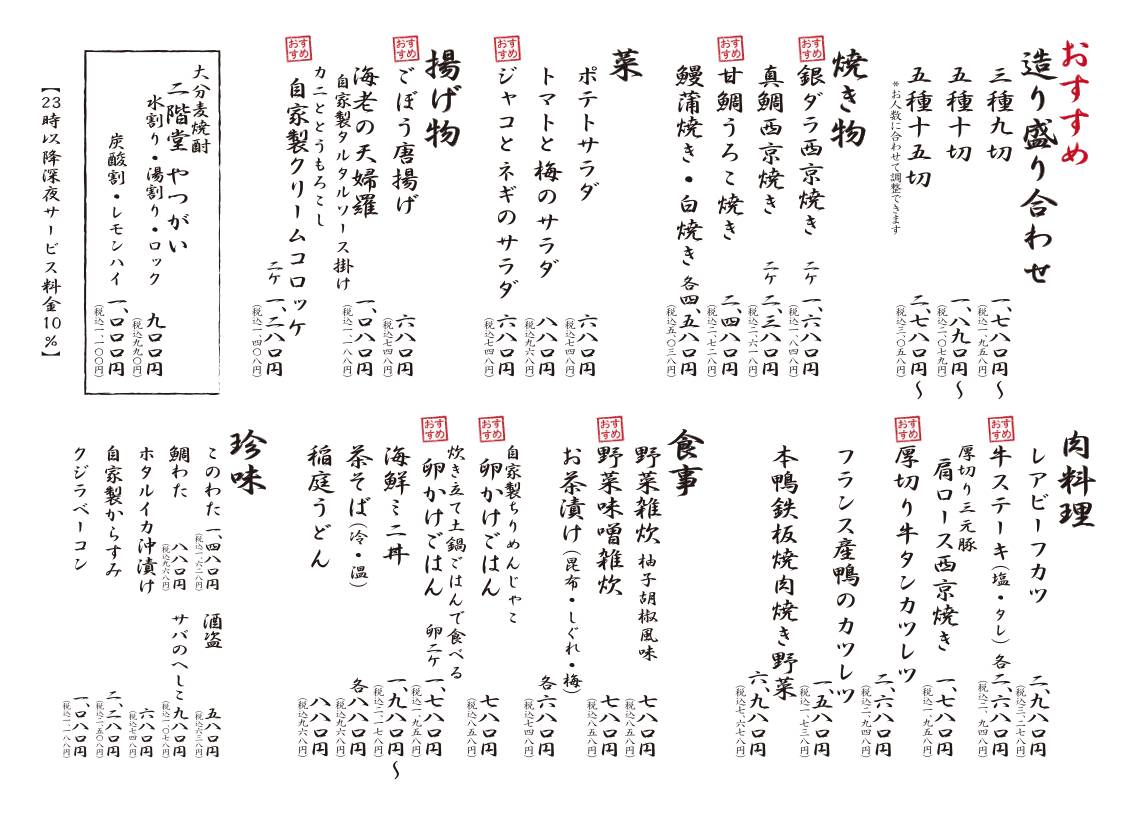 おすすめ
造り盛り合わせ
三種九切
一、七八〇円〜
(税込一、九五八円)
五種十切
一、八九〇円〜
(税込二、〇七九円)
五種十五切
二、七八〇円〜
(税込三、〇五八円)
*お人数に合わせて調整できます
焼き物
おすすめ
銀ダラ西京焼き 二ケ 一、六八〇円
(税込一、八四八円)
真鯛西京焼き 二ケ 二、三八〇円
(税込二、六一八円)
おすすめ
甘鯛うろこ焼き 二、四八〇円
(税込二、七二八円)
鰻蒲焼き・白焼き 各四、五八〇円
(税込五、〇三八円)
菜
ポテトサラダ 六八〇円
(税込七四八円)
トマトと梅のサラダ 八八〇円
(税込九六八円)
おすすめ
ジャコとネギのサラダ 六八〇円
(税込七四八円)
揚げ物
おすすめ
ごぼう唐揚げ 六八〇円
(税込七四八円)
海老の天婦羅
自家製タルタルソース掛け
一、〇八〇円
(税込一、一八八円)
おすすめ
カニととうもろこし
自家製クリームコロッケ
二ケ 一、二八〇円
(税込一、四〇八円)
大分麦焼酎
二階堂 やつがい
水割り・湯割り・ロック
九〇〇円
(税込九九〇円)
炭酸割・レモンハイ
一、〇〇〇円
(税込一、一〇〇円)
【23時以降深夜サービス料金10%】
肉料理
レアビーフカツ 二、九八〇円
(税込三、二七八円)
おすすめ
牛ステーキ(塩・タレ) 各二、六八〇円
(税込二、九四八円)
厚切り三元豚
肩ロース西京焼き 一、七八〇円
(税込一、九五八円)
おすすめ
厚切り牛タンカツレツ 二、六八〇円
(税込二、九四八円)
フランス産鴨のカツレツ 一、五八〇円
(税込一、七三八円)
本鴨鉄板焼肉焼き野菜 六、九八〇円
(税込七、六七八円)
食事
野菜雑炊 柚子胡椒風味 七八〇円
(税込八五八円)
おすすめ
野菜味噌雑炊 七八〇円
(税込八五八円)
お茶漬け(昆布・しぐれ・梅) 各六八〇円
(税込七四八円)
おすすめ
自家製ちりめんじゃこ
卵かけごはん 七八〇円
(税込八五八円)
おすすめ
炊き立て土鍋ごはんで食べる
卵かけごはん 卵二ケ 一、七八〇円
(税込一、九五八円)
海鮮ミニ丼 一、九八〇円〜
(税込二、一七八円)
茶そば(冷・温) 各八八〇円
(税込九六八円)
稲庭うどん 八八〇円
(税込九六八円)
珍味
このわた 一、四八〇円
(税込一、六二八円)
酒盗 五八〇円
(税込六三八円)
鯛わた 八八〇円
(税込九六八円)
サバのへしこ 九八〇円
(税込一、〇七八円)
ホタルイカ沖漬け 六八〇円
(税込七四八円)
自家製からすみ 二、二八〇円
(税込二、五〇八円)
クジラベーコン 一、〇八〇円
(税込一、一八八円)